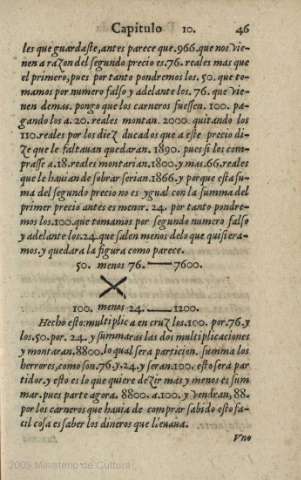 Capitulo 10. 46
les que guardaste, antes parece que .966. que nos vie-
nen a razon del segundo precio es .76. reales mas que
el primero, pues por tanto pondremos los .50. que to-
mamos por numero falso y adelante los .76. que vie-
nen demas. pongo que los carneros fuessen. 100. pa-
gando los a .20. reales montan. 2000. quitando los
110. reales por los diez ducados que a este precio di-
ze que le faltauan quedaran. 1890. pues si los com-
prasse a .18. reales montarian .1800. y mas .66. reales
que le hauian de sobrar serian .1866. y porque esta su-
ma del segundo precio no es ygual con la summa del
primer precio antes es menor. 24. por tanto pondre-
mos los .100. que tomamos por segundo numero falso
y adelante los .24. que salen menos delo que quisiera-
mos. y quedara la figura como parece.
50. menos 76. — 7600.
100. menos 24. — 1200.
Hecho esto: multiplica en cruz los .100. por .76. y
los .50. por. 24. y summaras las dos multiplicaciones
y montaran .8800. lo qual sera particion. summa los
herrores, como son .76. y .24. y seran .100. esto sera par
tidor. y esto es lo que quiere dezir mas y menos es sum
mar. pues parte agora. 8800. a .100. y vendran, 88.
por los carneros que hauia de comprar sabido esto fa-
cil cosa es saber los dineros que lleuaua.
Vno
2009 Ministerio de Cultura